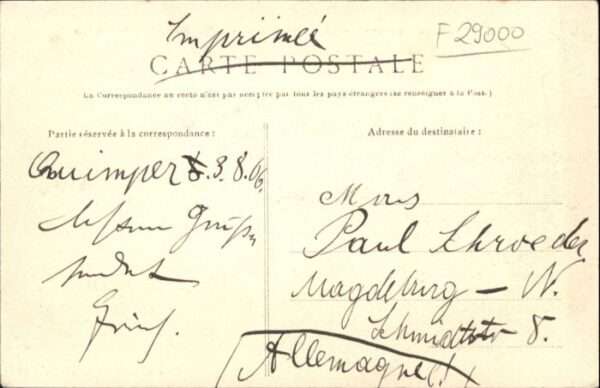 Imprimé
F 29000
CARTE POSTALE
La Correspondance au recto n'est pas acceptée par tous les pays étrangers (se renseigner à la Poste.)
Partie réservée à la correspondance :
Adresse du destinataire :
Quimper 3.8.06.
sendet
Mons
Paul Schroeder
Magdeburg - N.
Schmidtstr 8.
Allemagne!